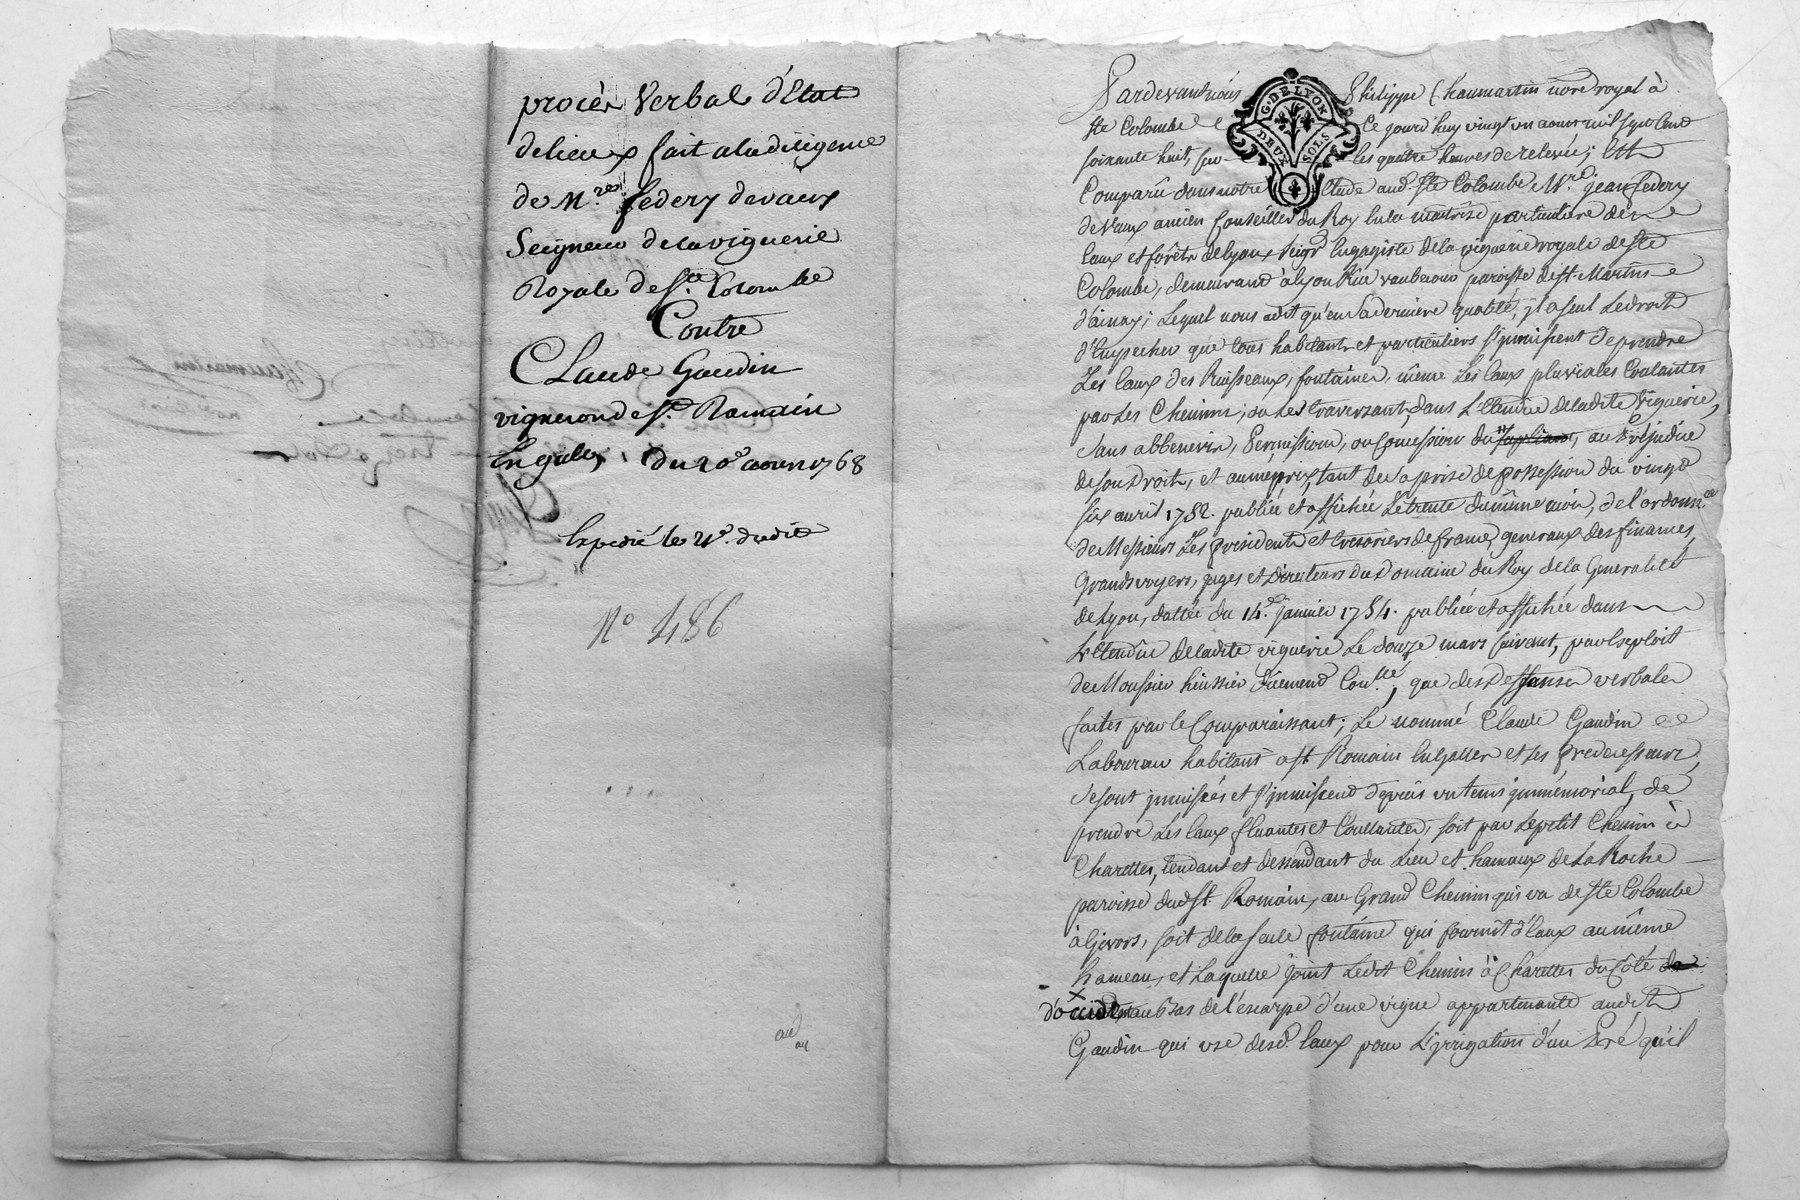 procès Verbal d'Etat
de lieux fait a la diligence
de Mre. federy devaux
Seigneur de la viguerie
Royale de Ste. Colombe
Contre
Claude Gaudin
vigneron de St. Romain
En galles, du 20e aoust 1768
Expédié le 21e. dudit
N° 486
au
au
G. DE LYON
DEUX SOLS
Pardevant nous Philippe Chaumartin nore royal à
Ste Colombe Ce jourd'huy vingt un aoust mil sept cent
soixante huit, sur les quatre heures de relevée; Est
Comparu dans notre Etude aud. Ste Colombe Mre. jean federy
de Vaux ancien Conseiller du Roy En la maitrise particuliere des
Eaux et forêts de Lyon, Seigr Engagiste de la viguerie royale de Ste
Colombe, demeurant à Lyon Rue vaubecour paroisse de St. Martin
d'ainay; Lequel nous a dit qu'en Sa derniere qualité, il a seul Le droit
d'Empecher que tous habitants et particuliers S'jmmissent de prendre
Les Eaux des Ruisseaux, fontaines, même Les Eaux pluviales Coulantes
par Les Chemins, ou Les traversant, dans L'Etendüe de ladite Viguerie,
Sans abbenevis, Permission, ou Concession du au Préjudice
de son Droit, et au mepris, tant de sa prise de possession du vingt
six avril 1752. publiée et affichée Le trente du même mois, de l'ordonnce
de Messieurs Les presidents et tresoriers de france, generaux des finances,
Grands voyers, juges et Directeurs du Domaine du Roy de la Generalité
de Lyon, dattée du 14e. janvier 1754. publiée et affichée dans
L'Etendüe de ladite viguerie Le douze mars suivant, par Exploit
de Moussier huissier que des Deffenses verbales
faites par le Comparaissant; Le nommé Claude Gaudin
Laboureur habitant a St. Romain En Galles et ses predecesseurs,
Se sont jmmiscés et S'jmmissent depuis un tems jmmémorial, de
prendre Les Eaux fluantes et Coullantes, soit par Le petit Chemin à
Charettes, tendant et dessendant du Lieu et hameaux de La Roche
paroisse dud. St. Romain, au Grand Chemin qui va de Ste Colombe
à Givors, soit de la seule fontaine qui fournit d'Eaux au même
hameau, et Laquelle joint Ledit Chemin à Charettes du Côté de
d'occident au bas de l'escarpe d'une vigne appartenante audit
Gaudin qui use desd. Eaux pour L'jrrigation d'un Pré qu'il